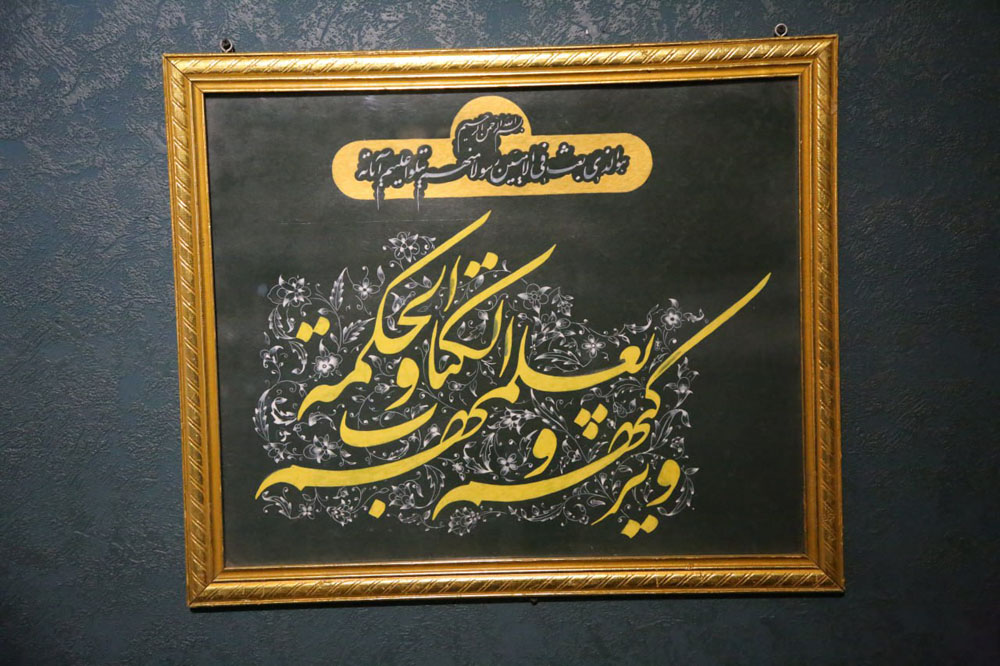 بسم الله الرحمن الرحیم
هوالذی بعث فی الامیین رسولا منهم یتلوا علیهم آیاته
ویزکیهم و یعلمهم الکتاب والحکمة